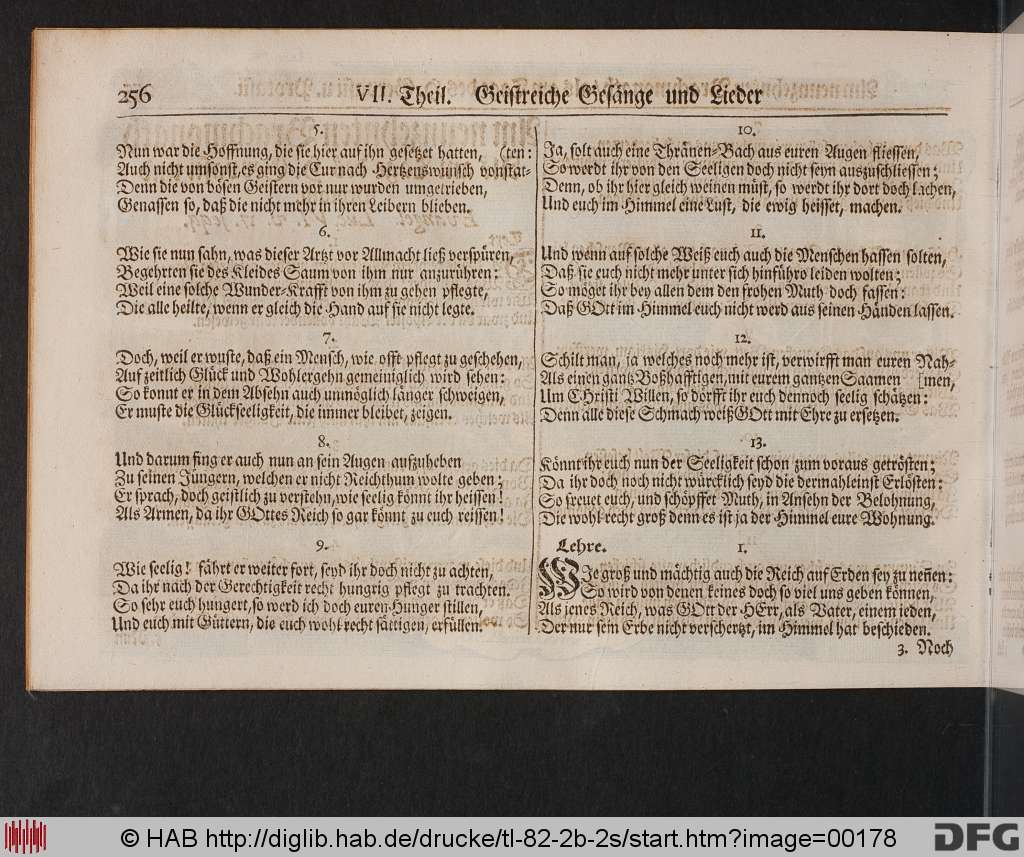 256 VII. Theil. Geistreiche Gesänge und Lieder
5.
Nun war die Hoffnung, die sie hier auf ihn gesetzet hatten, (ten:
Auch nicht umsonst, es ging die Cur nach Hertzenswunsch vonstat-
Denn die von bösen Geistern vor nur wurden umgetrieben,
Genassen so, daß die nicht mehr in ihren Leibern blieben.
6.
Wie sie nun sahn, was dieser Artzt vor Allmacht ließ verspüren,
Begehrten sie des Kleides Saum von ihm nur anzurühren:
Weil eine solche Wunder-Krafft von ihm zu gehen pflegte,
Die alle heilte, wenn er gleich die Hand auf sie nicht legte.
7.
Doch, weil er wuste, daß ein Mensch, wie offt pflegt zu geschehen,
Auf zeitlich Glück und Wohlergehn gemeiniglich wird sehen:
So konnt er in dem Absehn auch unmöglich länger schweigen,
Er muste die Glückseeligkeit, die immer bleibet, zeigen.
8.
Und darum fing er auch nun an sein Augen aufzuheben
Zu seinen Jüngern, welchen er nicht Reichthum wolte geben;
Er sprach, doch geistlich zu verstehn, wie seelig könnt ihr heissen!
Als Armen, da ihr GOttes Reich so gar könnt zu euch reissen!
9.
Wie seelig! fährt er weiter fort, seyd ihr doch nicht zu achten,
Da ihr nach der Gerechtigkeit recht hungrig pflegt zu trachten.
So sehr euch hungert, so werd ich doch euren Hunger stillen,
Und euch mit Güttern, die euch wohl recht sättigen, erfüllen.
10.
Ja, solt auch eine Thränen-Bach aus euren Augen fliessen,
So werdt ihr von den Seeligen doch nicht seyn auszuschliessen;
Denn, ob ihr hier gleich weinen müst, so werdt ihr dort doch lachen,
Und euch im Himmel eine Lust, die ewig heisset, machen.
11.
Und wenn auf solche Weiß euch auch die Menschen hassen solten,
Daß sie euch nicht mehr unter sich hinführo leiden wolten;
So möget ihr bey allen dem den frohen Muth doch fassen:
Daß GOtt im Himmel euch nicht werd aus seinen Händen lassen.
12.
Schilt man, ja welches noch mehr ist, verwirfft man euren Nah-
Als einen gantz Boßhafftigen, mit eurem gantzen Saamen [men,
Um CHristi Willen, so dörfft ihr euch dennoch seelig schätzen:
Denn alle diese Schmach weiß GOtt mit Ehre zu ersetzen.
13.
Könnt ihr euch nun der Seeligkeit schon zum voraus getrösten;
Da ihr doch noch nicht würcklich seyd die dermahleinst Erlösten:
So freuet euch, und schöpffet Muth, in Ansehn der Belohnung,
Die wohl recht groß denn es ist ja der Himmel eure Wohnung.
Lehre. 1.
WJe groß und mächtig auch die Reich auf Erden sey zu neñen:
So wird von denen keines doch so viel uns geben können,
Als jenes Reich, was GOtt der HErr, als Vater, einem jeden,
Der nur sein Erbe nicht verschertzt, im Himmel hat beschieden.
3. Noch
© HAB http://diglib.hab.de/drucke/tl-82-2b-2s/start.htm?image=00178
DFG